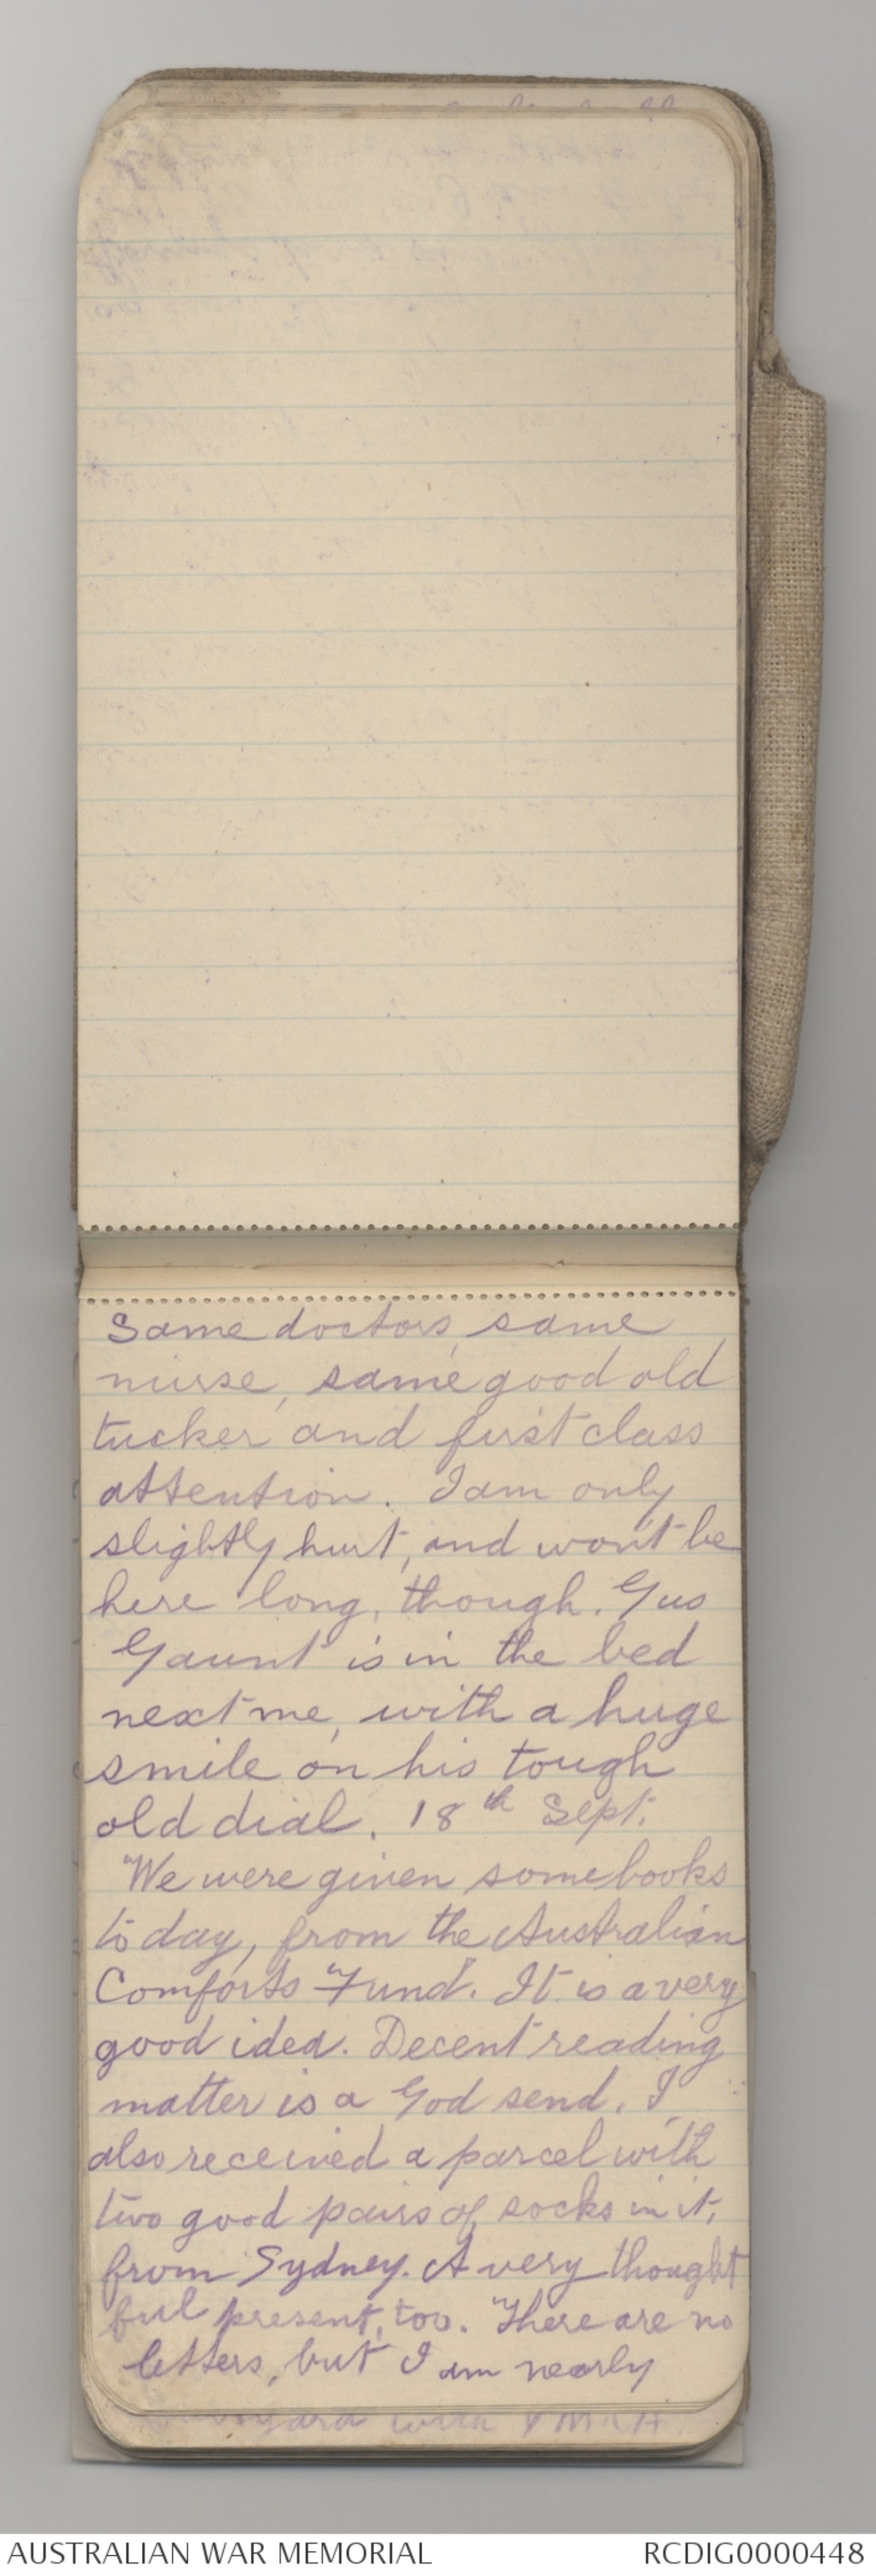 Same doctors, same
nurse, same good old
tucker and first class
attention. I am only
slightly hurt, and won't be
here long, though. Gus
Gaunt is in the bed
next me, with a huge
smile on his tough
old dial. 18th Sept.
We were given some books
to day, from the Australian
Comforts Fund. It is a very
good idea. Decent reading
matter is a God send. I
also received a parcel with
two good pairs of socks in it,
from Sydney. A very thought
ful present, too. There are no
letters, but I am nearly
with
AUSTRALIAN WAR MEMORIAL
RCDIG0000448